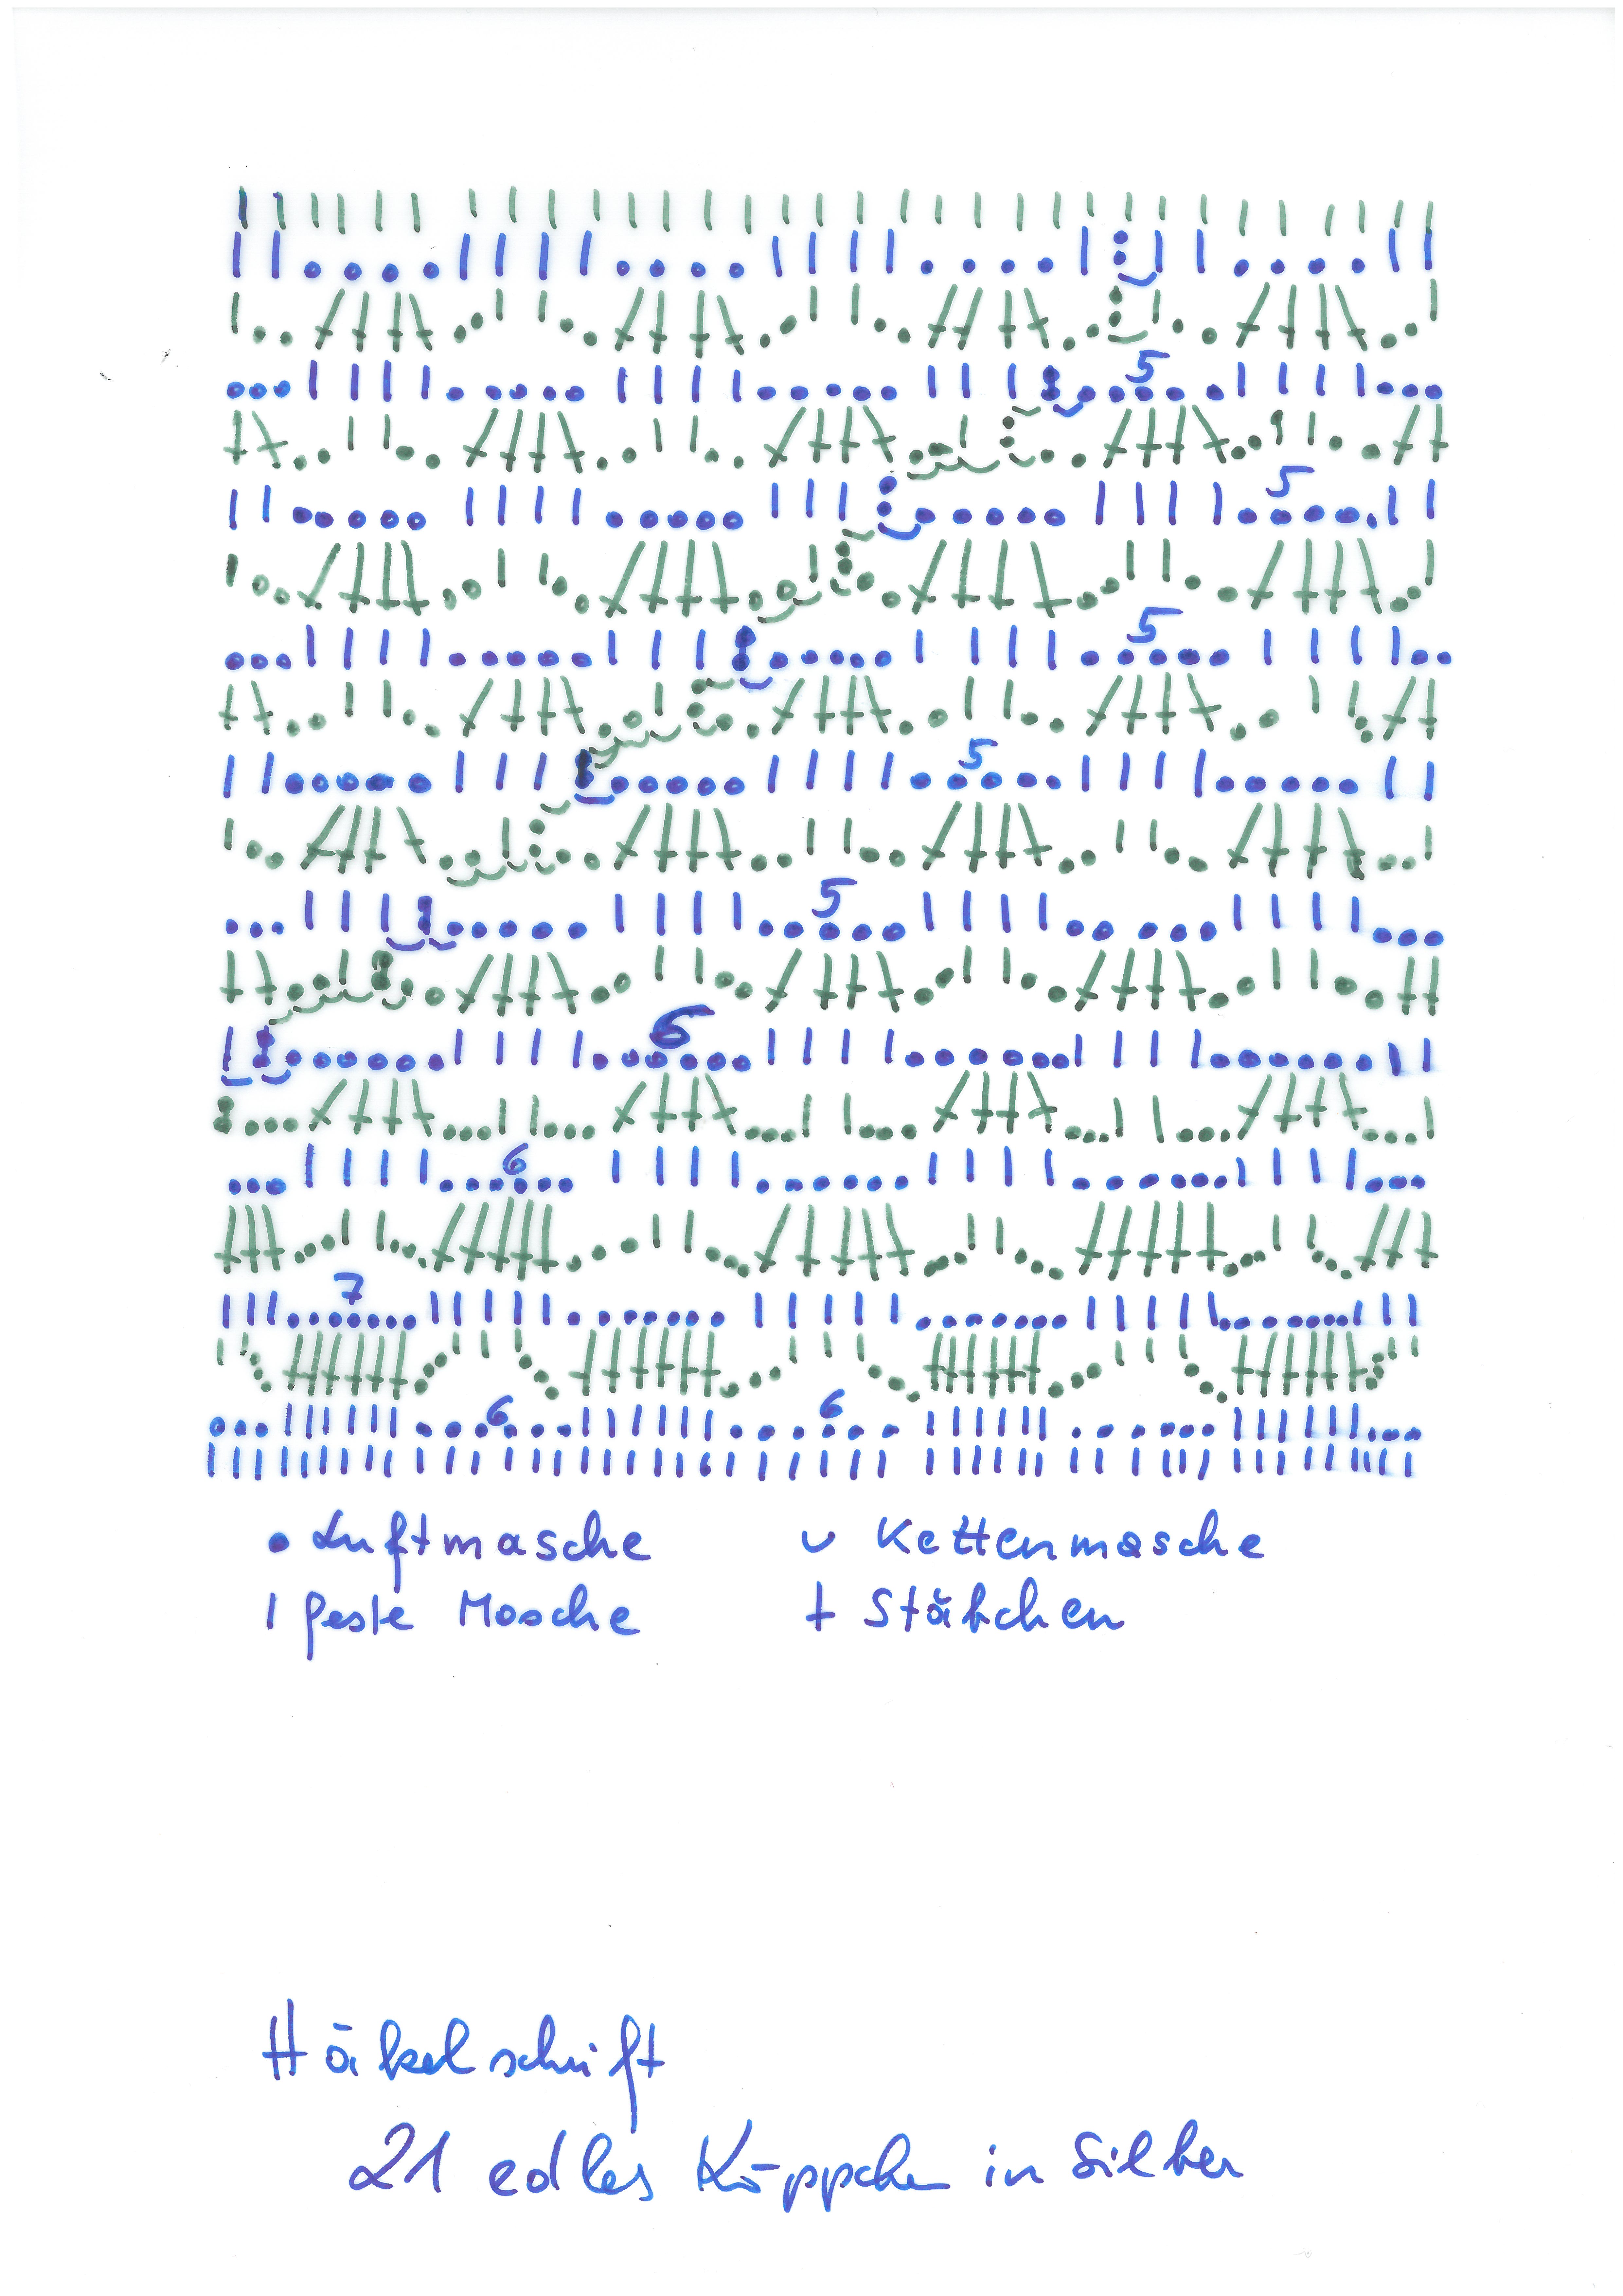 5
5
5
5
5
6
6
7
6 6
• Luftmasche ᴗ Kettenmasche
| feste Masche † Stäbchen
Häkelschrift
21 edles Käppchen in Silber